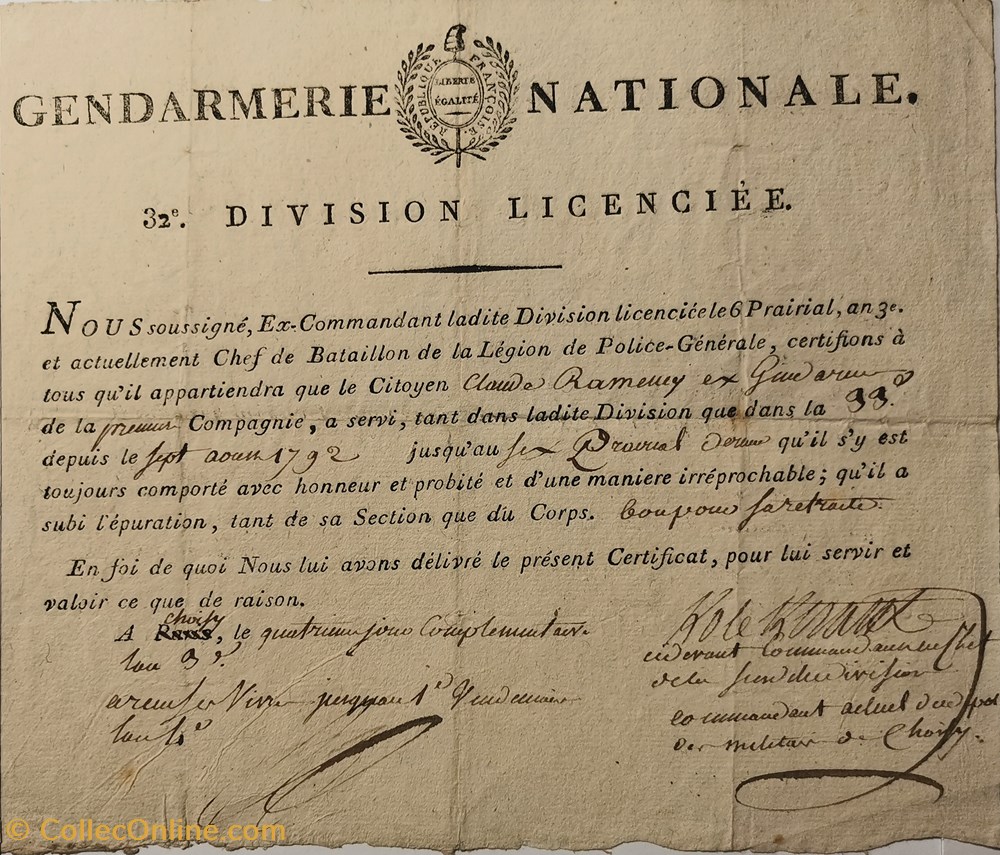 GENDARMERIE NATIONALE.
RÉPUBLIQUE FRANÇOISE.
LIBERTÉ
ÉGALITÉ
32e. DIVISION LICENCIÉE.
NOUS soussigné, Ex-Commandant ladite Division licenciée le 6 Prairial, an 3e.
et actuellement Chef de Bataillon de la Légion de Police-Générale, certifions à
tous qu'il appartiendra que le Citoyen Claude Ramelley ex Gendarme
de la premier Compagnie, a servi, tant dans ladite Division que dans la 33e.
depuis le sept aoust 1792 jusqu'au six Prairial dernier qu'il s'y est
toujours comporté avec honneur et probité et d'une maniere irréprochable; qu'il a
subi l'épuration, tant de sa Section que du Corps. bon pour sa retraite.
En foi de quoi Nous lui avons délivré le présent Certificat, pour lui servir et
valoir ce que de raison.
choisy
A Paris, le quatrieme jour Complementaire
lan 3e.
a reçu ses Vivres jusquau 1er Vendemiaire
lan 4e
cidevant Commandant en Chef
de la susdite division
commandant actuel du depot
des militair de Choisy.
© CollecOnline.com